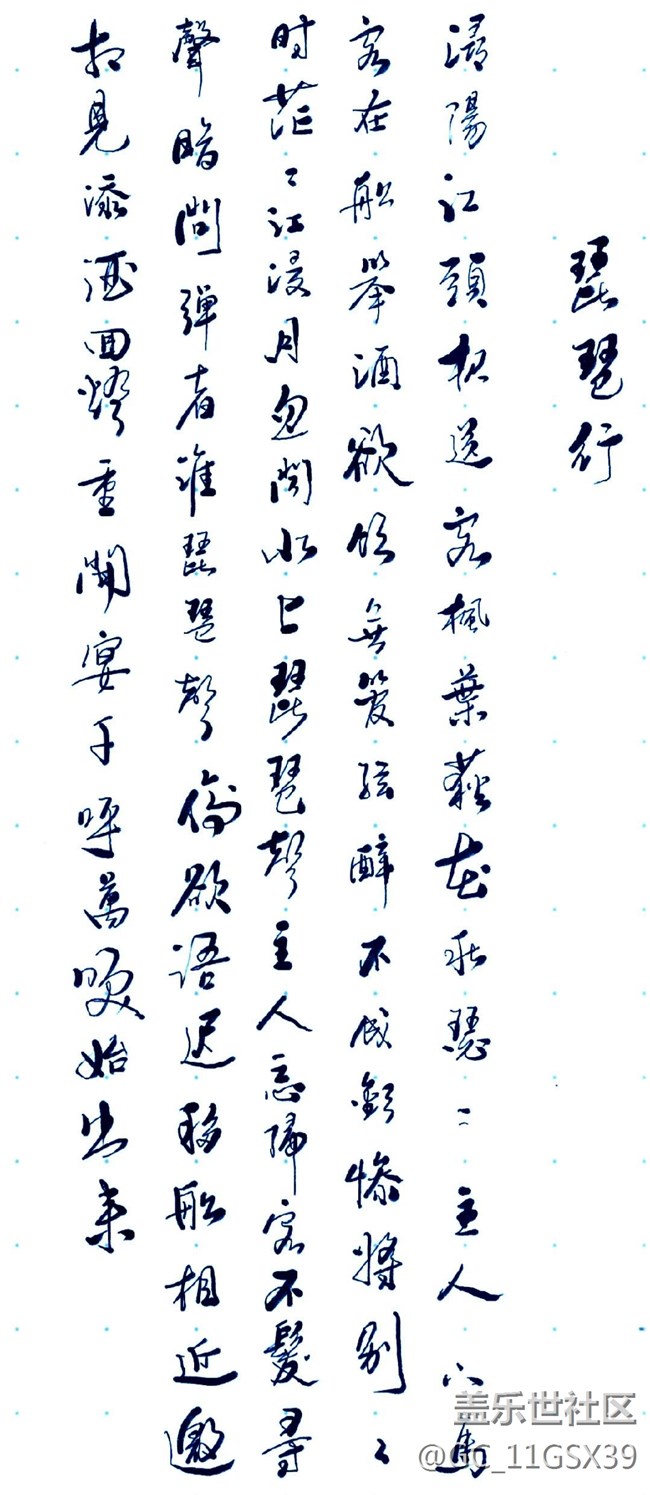 琵琶行
潯陽江頭夜送客楓葉荻花秋瑟〻主人下馬
客在船舉酒欲飲無管弦醉不成歡慘將别〻
时茫〻江浸月忽聞水上琵琶聲主人忘歸客不髮尋
聲暗問彈者誰琵琶聲停欲语迟移船相近邀
相見添酒回燈重開宴千呼萬喚始出来
盖乐世社区
@GC_11GSX39